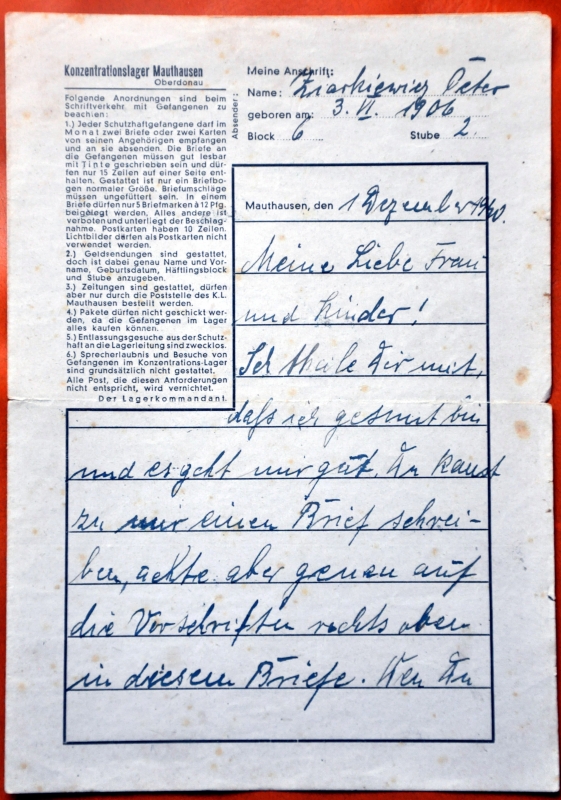 Konzentrationslager Mauthausen
Oberdonau
Folgende Anordnungen sind beim
Schriftverkehr mit Gefangenen zu
beachten:
1.) Jeder Schutzhaftgefangene darf im
Monat zwei Briefe oder zwei Karten
von seinen Angehörigen empfangen
und an sie absenden. Die Briefe an
die Gefangenen müssen gut lesbar
mit Tinte geschrieben sein und dür-
fen nur 15 Zeilen auf einer Seite ent-
halten. Gestattet ist nur ein Briefbo-
gen normaler Größe. Briefumschläge
müssen ungefüttert sein. In einem
Briefe dürfen nur 5 Briefmarken à 12 Pfg.
beigelegt werden. Alles andere ist
verboten und unterliegt der Beschlag-
nahme. Postkarten haben 10 Zeilen.
Lichtbilder dürfen als Postkarten nicht
verwendet werden.
2.) Geldsendungen sind gestattet,
doch ist dabei genau Name und Vor-
name, Geburtsdatum, Häftlingsblock
und Stube anzugeben.
3.) Zeitungen sind gestattet, dürfen
aber nur durch die Poststelle des K.L.
Mauthausen bestellt werden.
4.) Pakete dürfen nicht geschickt wer-
den, da die Gefangenen im Lager
alles kaufen können.
5.) Entlassungsgesuche aus der Schutz-
haft an die Lagerleitung sind zwecklos.
6.) Sprecherlaubnis und Besuche von
Gefangenen im Konzentrations-Lager
sind grundsätzlich nicht gestattet.
Alle Post, die diesen Anforderungen
nicht entspricht, wird vernichtet.
Der Lagerkommandant.
Absender:
Meine Anschrift:
Name: Peter
geboren am: 3. VI. 1906
Block 6 Stube 2.
Mauthausen, den 1 Dezember 1940.
Meine Liebe Frau
und Kinder!
Ich theile Dir mit,
daß ich gesunt bin
und es geht mir gut. Du kanst
zu mir einen Brief schrei-
ben, achte aber genau auf
die Vorschriften rechts oben
in diesem Briefe. Wen Du